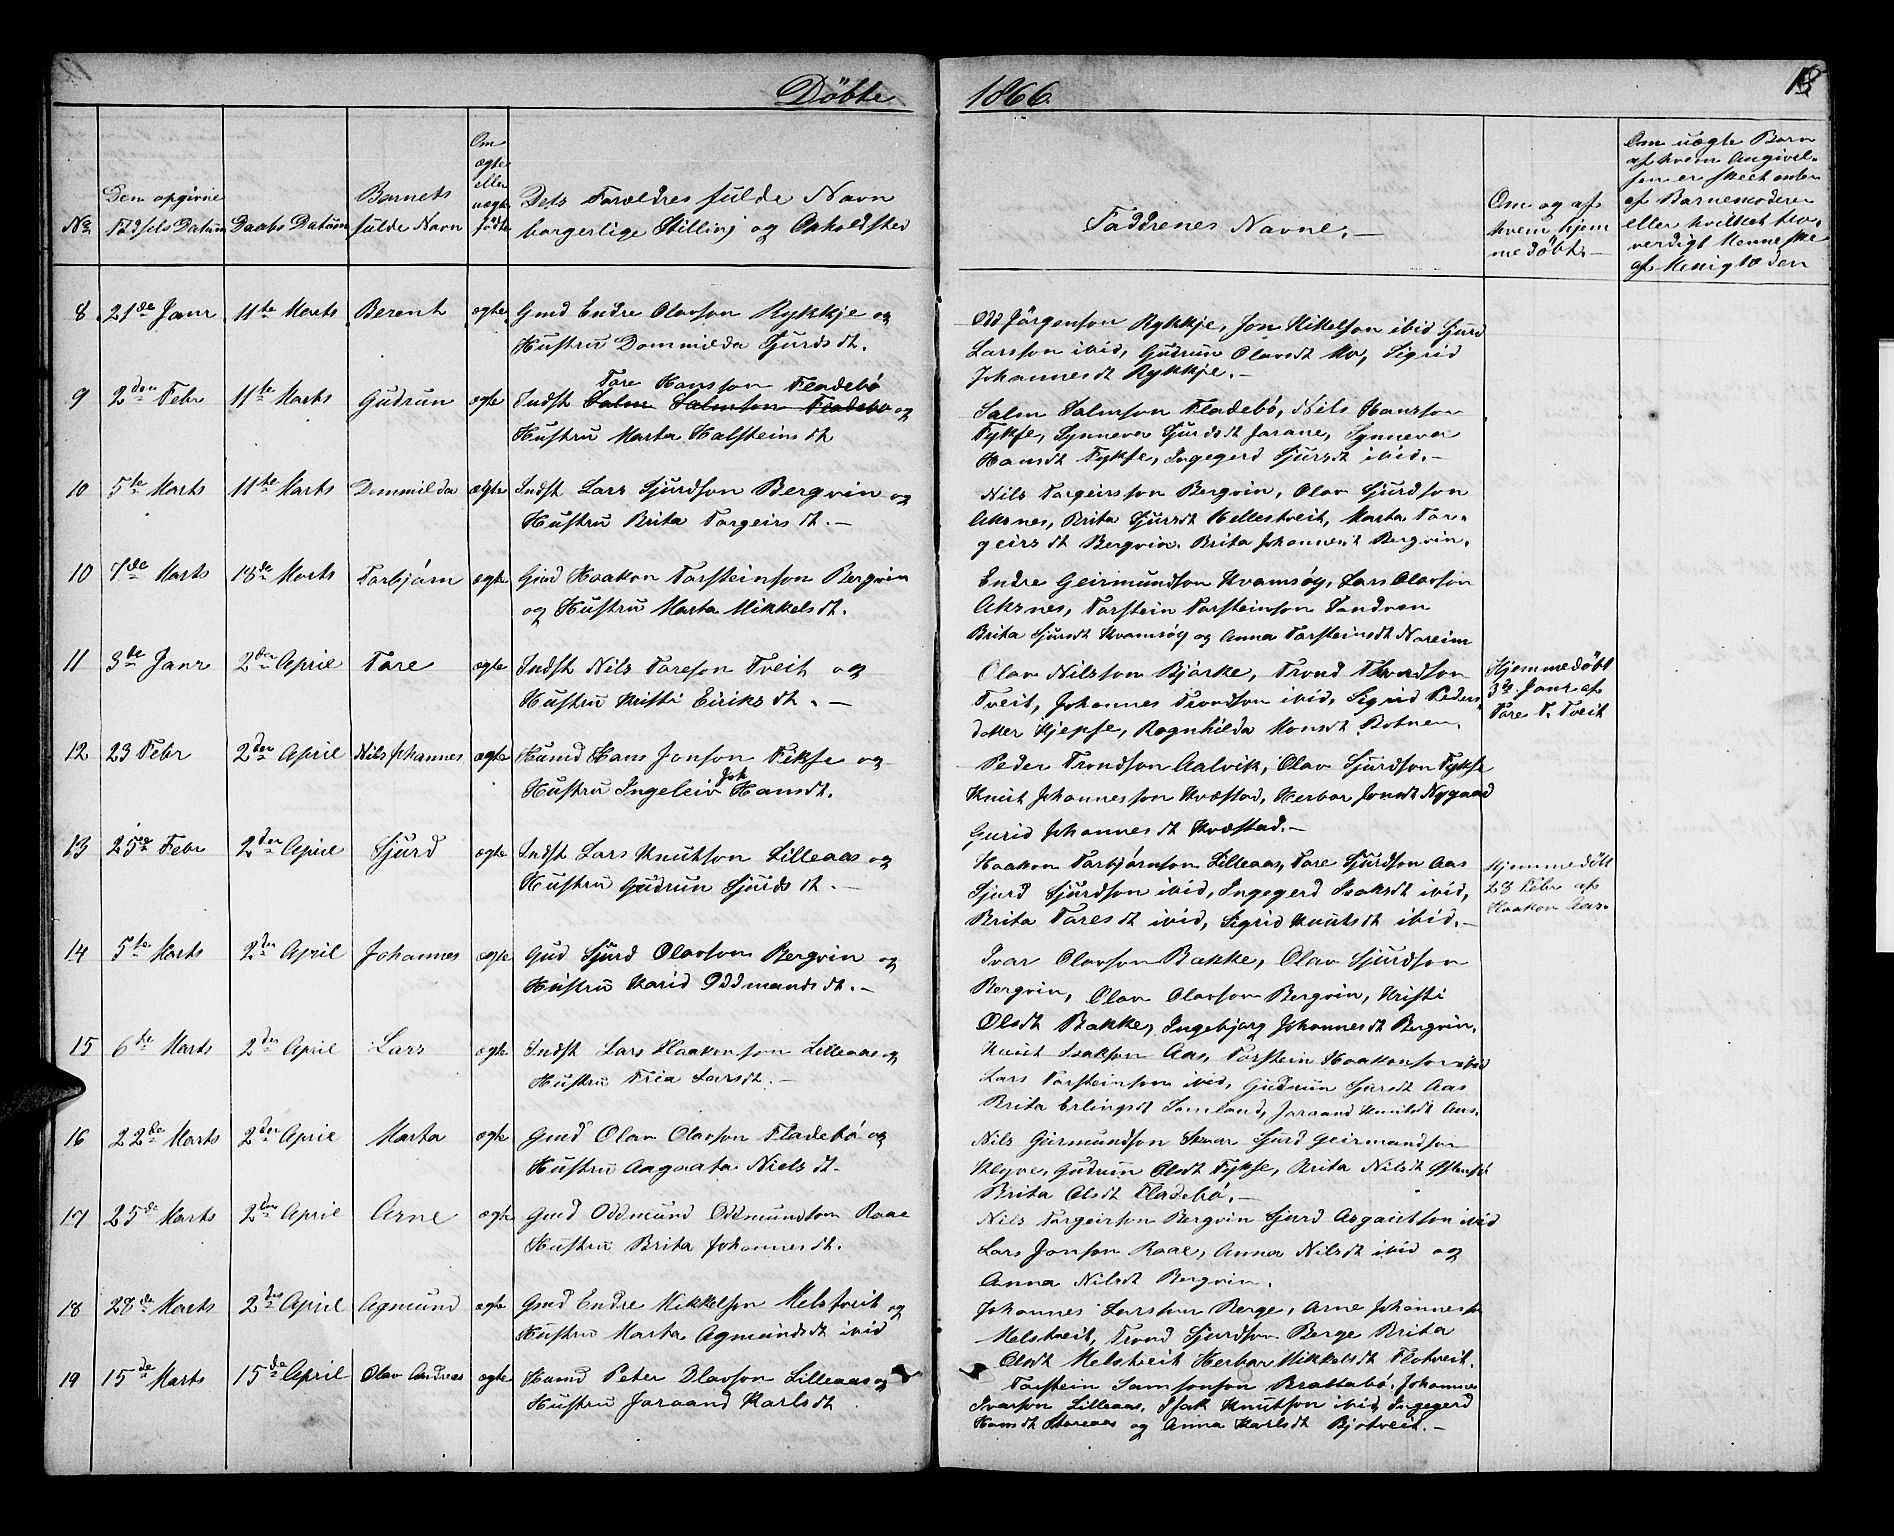 Döbte 1866.
13
No
Den opgivne
Födsels Datum
Daabs Datum
Barnets
fulde Navn
Om
ægte
eller
uægte
födte
Dets Foreldres fulde Navn
borgerlige Stilling og Opholdsted
Faddrenes Navne.
Om og af
hvem hjem
medöbt.
Om uægte Barn
af hvem Angivel-
sen er skeet enten
af Barnemoderen
eller hvilket tro-
verdigt Menneske
af Menigheden
8 21de Janr 11te Marts Berent ægte Gmd Endre Olavson Rykkje og
Hustru Dommilda Sjurdsdt.
Odd Jörgenson Rykkje, Jon Mikelson ibid Sjurd
Larsson ibid, Gudrun Olavsdt Mo, Sigrid
Johannesdt Rykkje.
9 2den Febr 11te Marts Gudrun ægte Indst Tore Hansson Fladebö
Salm Salmson Fladebö og
Hustru Marta Halsteinsdt
Salm Salmson Fladebö, Nils Hansson
Fykse, Synneva Sjurdsdt Jarane, Synneva
Hansdt Fykse, Ingegerd Sjursdt ibid.
10 5te Marts 11te Marts Dommilda ægte Indst Lars Sjurdson Bergvin og
Hustru Brita Torgeirsdt.
Nils Torgeirsson Bergvin, Olav Sjurdson
Aksnes, Brita Sjursdt Hellestveit, Marta Tor-
geirsdt Bergvin. Brita Johannesdt Bergvin.
10 7de Marts 18de Marts Torbjörn ægte Gmd Haakon Torsteinson Bergvin
og Hustru Marta Mikkelsdt.
Endre Geirmundson Kvamsöy, Lars Olavson
Aksnes, Torstein Torsteinson Sandven
Brita Sjursdt Kvamsöy og Anna Torsteinsdt Noreim
11 3de Janr 2den April Tore ægte Indst Nils Toreson Tveit og
Hustru Kristi Eiriksdt.
Olav Nilsson Björke, Trond Trondson
Tveit, Johannes Trondson ibid, Sigrid Peders-
dotter Hjepse, Ragnhilda Monsdt Botnen
Hjemmedöbt
3de Janr af
Tore T. Tveit
12 23 Febr 2den April Nils Johannes ægte Humd Hans Jonson Fikse og
Hustru Ingeleiv Joh Hansdt.
Peder Trondson Aalvik, Olav Sjurdson Fykse
Knut Johannesson Kvæstad, Herbor Jonsdt Nygaard
Gurid Johannesdt Kvæstad.
13 25de Febr 2den April Sjurd ægte Indst Lars Knutson Lilleaas og
Hustru Gudrun Sjurdsdt.
Haakon Torbjörnson Lilleaas, Tore Sjurdson Aas
Sjurd Sjurdson ibid, Ingegerd Isaksdt ibid,
Brita Toresdt ibid, Sigrid Knutsdt ibid.
Hjemmedöbt
23 Febr af
Haakon Aas.
14 5te Marts 2den April Johannes ægte Gmd Sjurd Olavson Bergvin og
Hustru Karid Oddmundsdt.
Ivar Olavson Bakke, Olav Sjurdson
Bergvin, Olav Olavson Bergvin, Kristi
Olsdt Bakke, Ingebjorg Johannesdt Bergvin.
15 6te Marts 2den April Lars ægte Indst Lars Haakonson Lilleaas og
Hustru Tria Larsdt.
Knut Isakson Aas, Torstein Haakonson ibid
Lars Torsteinson ibid, Gudrun Sjursdt Aas
Brita Erlingsdt Samland, Joraand Knutsdt Aas.
16 22de Marts 2den April Marta ægte Gmd Olav Olavson Fladebö og
Hustru Aagaata Nielsdt.
Nils Geirmundson Skaar Sjurd Geirmundson
Klyve, Gudrun Olsdt Fykse, Brita Nilsdt
Brita Olsdt Fladebö.
17 25de Marts 2den April Arne ægte Gmd Oddmund Oddmundson Raae
Hustru Brita Johannesdt.
Nils Torgeirson Bergvin Sjurd Asgautson ibid
Lars Jonson Raae, Anna Nilsdt ibid og
Anna Nilsdt Bergvin.
18 28de Marts 2den April Agmund ægte Gmd Endre Mikkelson Melstveit og
Hustru Marta Agmundsdt ibid
Johannes Larsson Berge, Arne Johannesson
Melstveit, Trond Sjurdson Berge Brita
Olsdt Melstveit Herbor Mikkelsdt Flotveit.
19 15de Marts 15de April Olav Andreas ægte Humd Peter Olavson Lilleaas og
Hustru Joraand Karlsdt
Torstein Samsonson Brattabö. Johannes
Ivarson Lilleaas, Isak Knutson ibid, Ingegerd
Hansdt Storeaas og Anna Karlsdt Bjotveit.